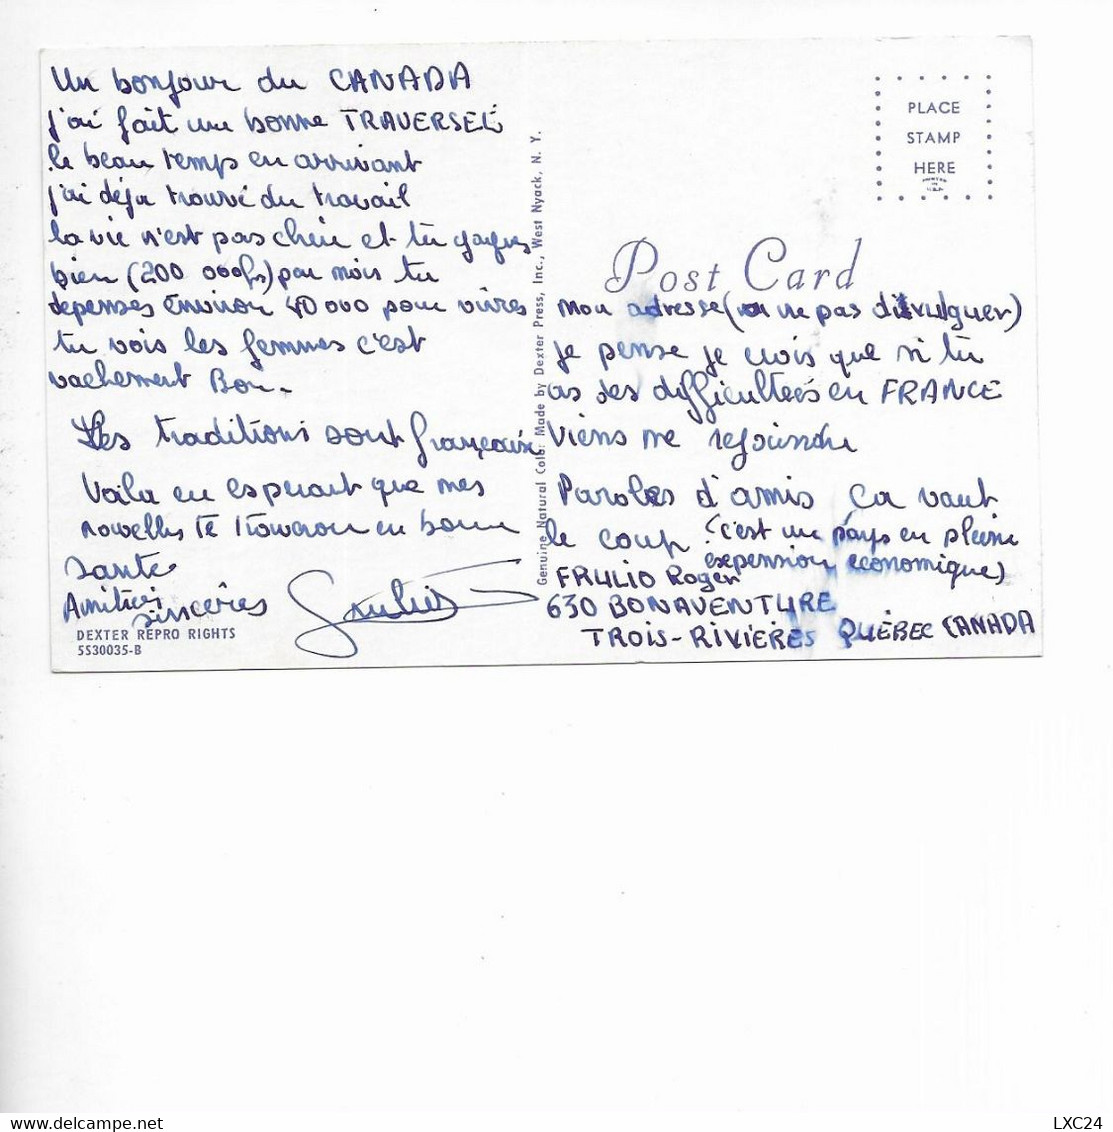 Un bonjour du CANADA
j'ai fait une bonne TRAVERSEÉ
le beau temps en arrivant
j'ai déja trouvé du travail
la vie n'est pas chère et tu gagnes
bien (200 000frs) par mois tu
depenses environ 40 000 pour vivres
tu vois les femmes c'est
vachement Bon.
Les traditions sont françaises
Voila en esperant que mes
nouvelles te trouveron en bonne
santé
Amitiés
sincères
DEXTER REPRO RIGHTS
5S30035-B
Genuine Natural Color Made by Dexter Press, Inc., West Nyack, N. Y.
PLACE
STAMP
HERE
Post Card
mon adresse (a ne pas divulguer)
je pense je crois que si tu
as des difficultées en FRANCE
viens me rejoindre
Paroles d'amis ça vaut
le coup (c'est un pays en pleine
expension économique)
FRULIO Roger
630 BONAVENTURE
TROIS-RIVIÈRES QUÉBEC CANADA
LXC24